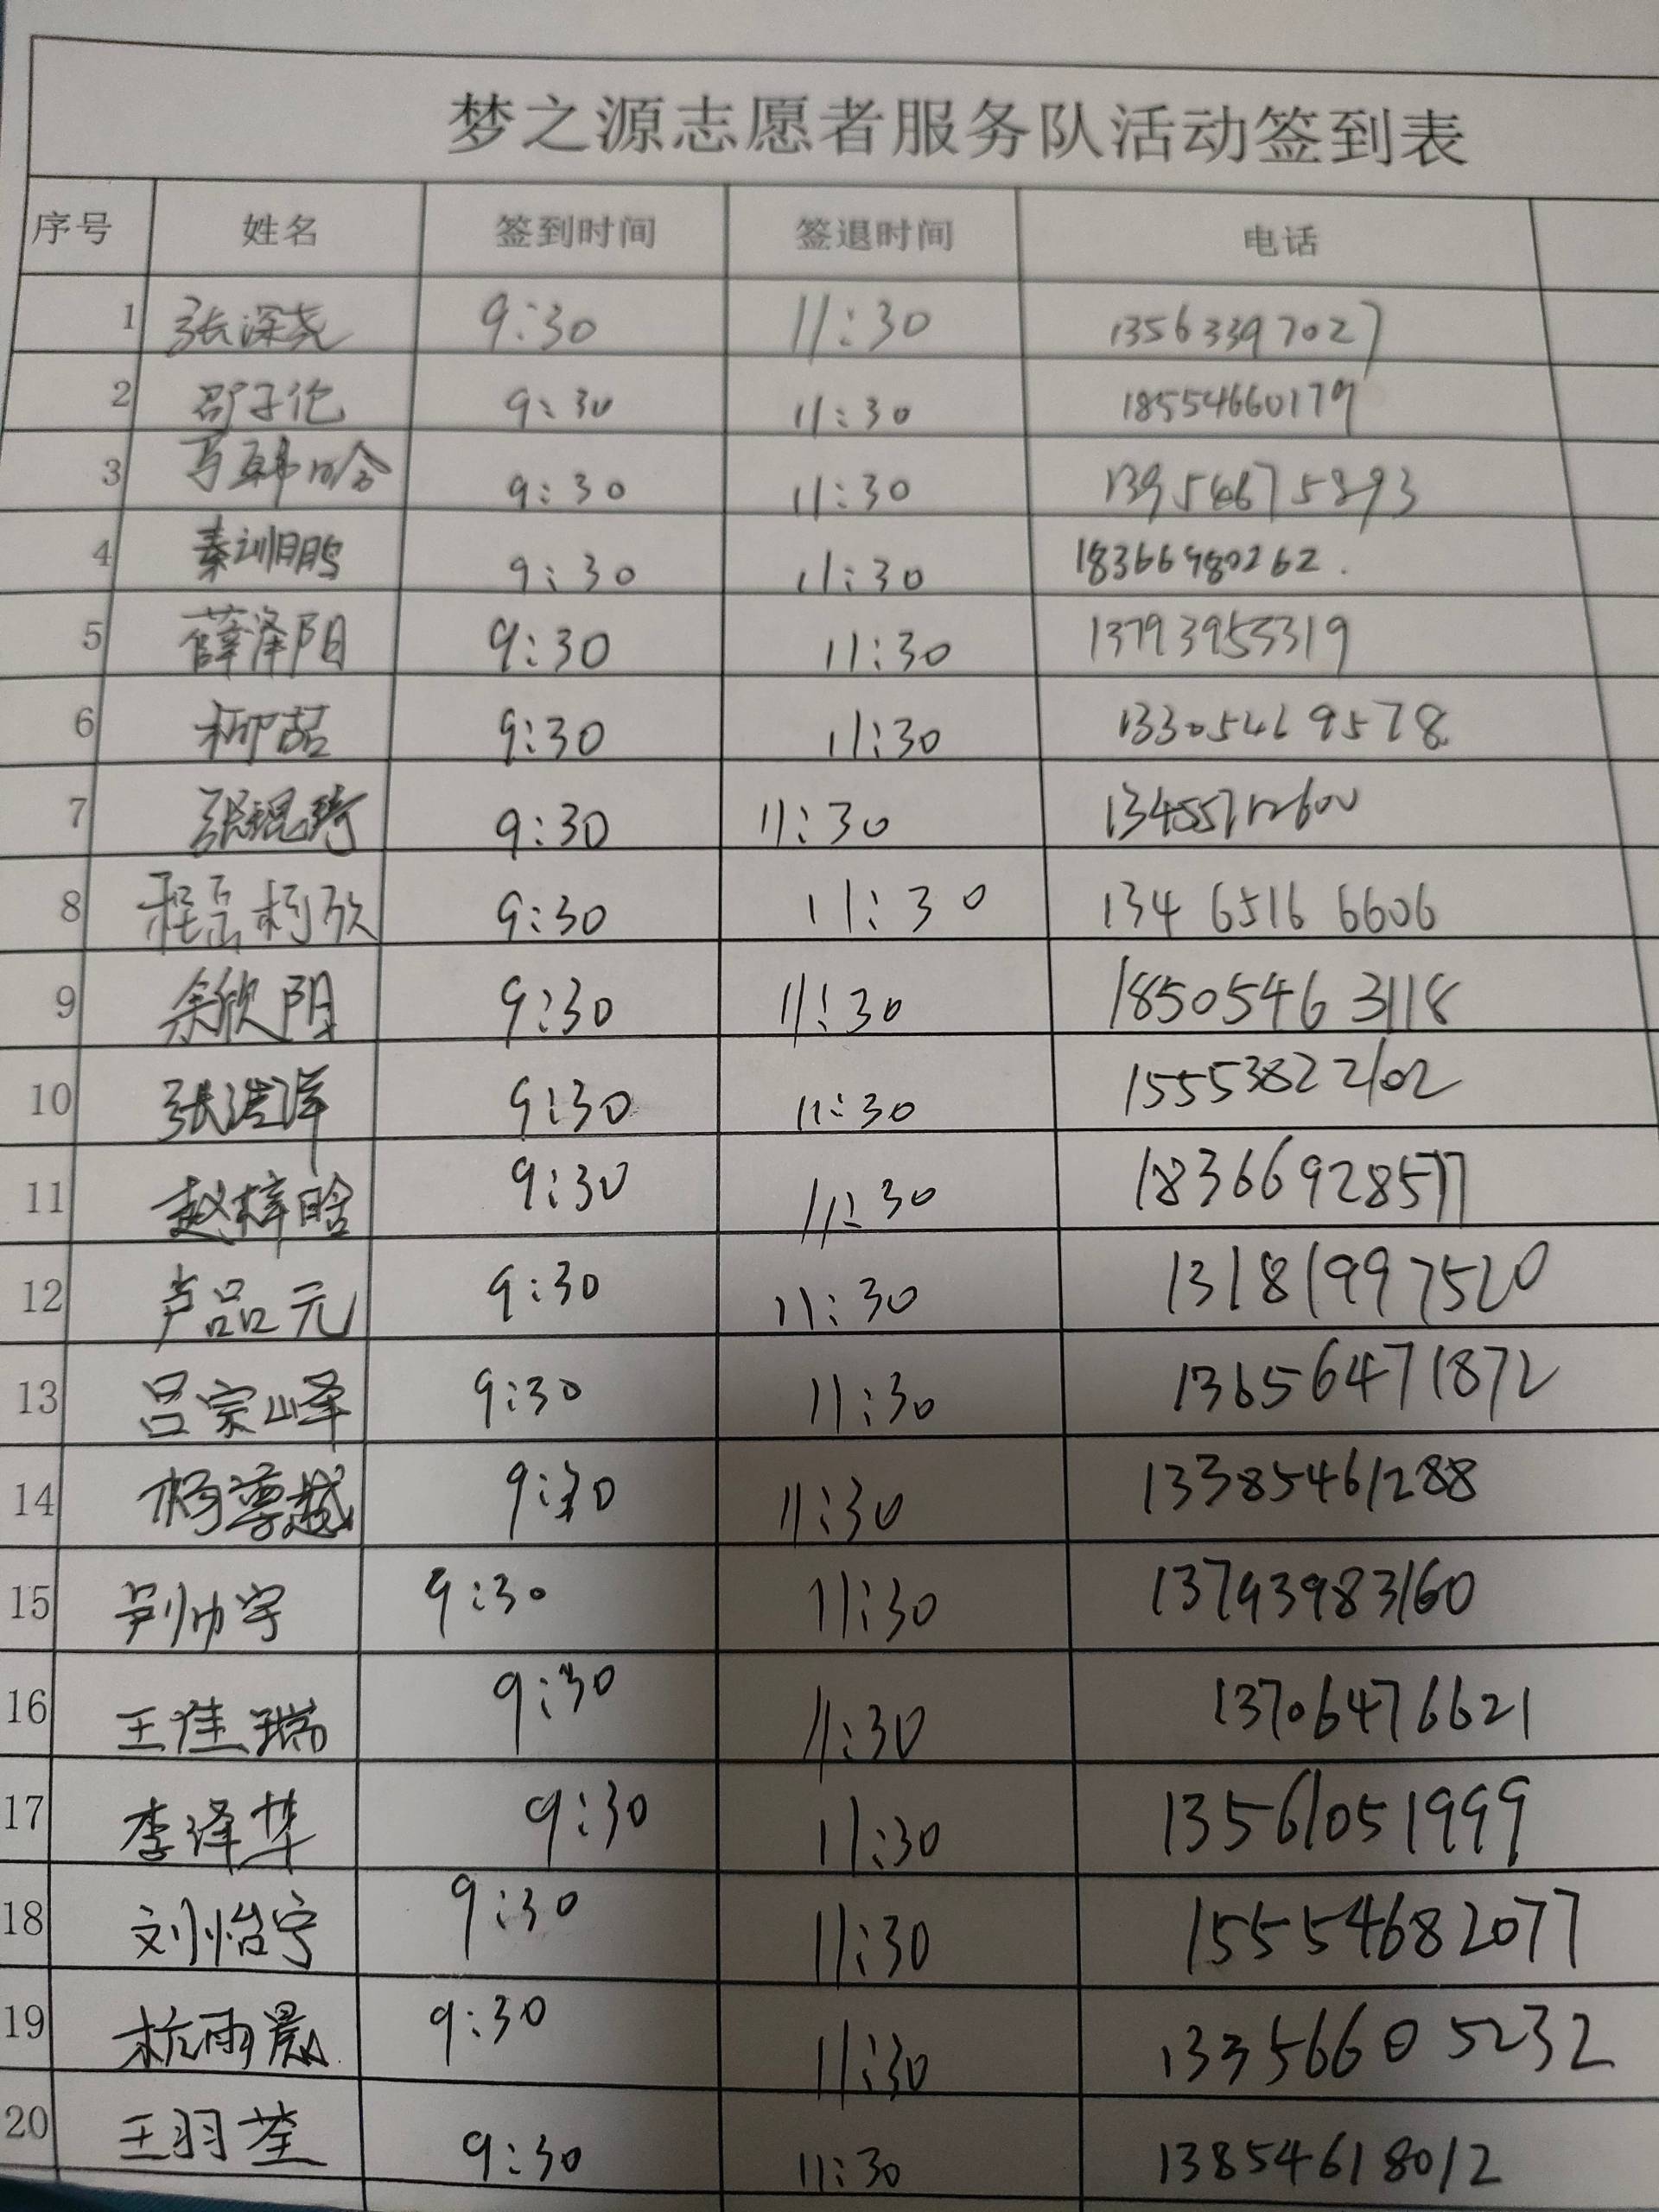 梦之源志愿者服务队活动签到表
序号 姓名 签到时间 签退时间 电话
1 张深尧 9:30 11:30 13563397027
2 邵子伦 9:30 11:30 18554660179
3 9:30 11:30 13954675893
4 秦训鹏 9:30 11:30 18366980262.
5 薛泽阳 9:30 11:30 13793955319
6 柳喆 9:30 11:30 13305469578
7 张琨琦 9:30 11:30
8 程岳柯欣 9:30 11:30 134 6516 6606
9 余欣阳 9:30 11:30 18505463118
10 张浩洋 9:30 11:30 15553822102
11 赵梓晗 9:30 11:30 18366928577
12 卢品元 9:30 11:30 13181997520
13 吕宗峰 9:30 11:30 13656471872
14 杨尊越 9:30 11:30 13385461288
15 尹帅宇 9:30 11:30 13793983160
16 王佳瑞 9:30 11:30 13706476621
17 李泽华 9:30 11:30 13561051999
18 刘怡宁 9:30 11:30 15554682077
19 杭雨晨 9:30 11:30 13356605232
20 王羽荃 9:30 11:30 13854618012